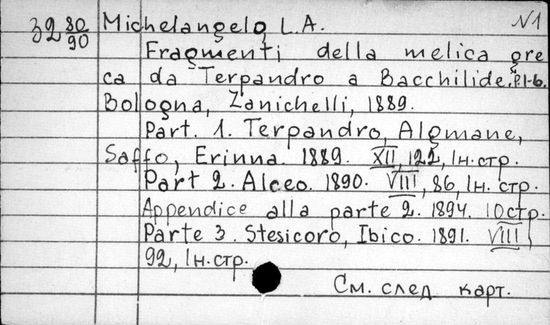 32 80/90 Michelangelo, L.A. N1
Fragmenti della melica gre
ca da Terpandro a Bacchilide. P.1-6.
Bologna, Zanichelli, 1889.
Part. 1. Terpandro, Algmane,
Saffo, Erinna. 1889. XII, 122, 1н.стр.
Part 2. Alceo. 1890. VIII, 86, 1н. стр.
Appendice alla parte 2. 1894. 10стр.
Parte 3. Stesicoro, Ibico. 1891. VIII,
92, 1н.стр.
См. след. карт.